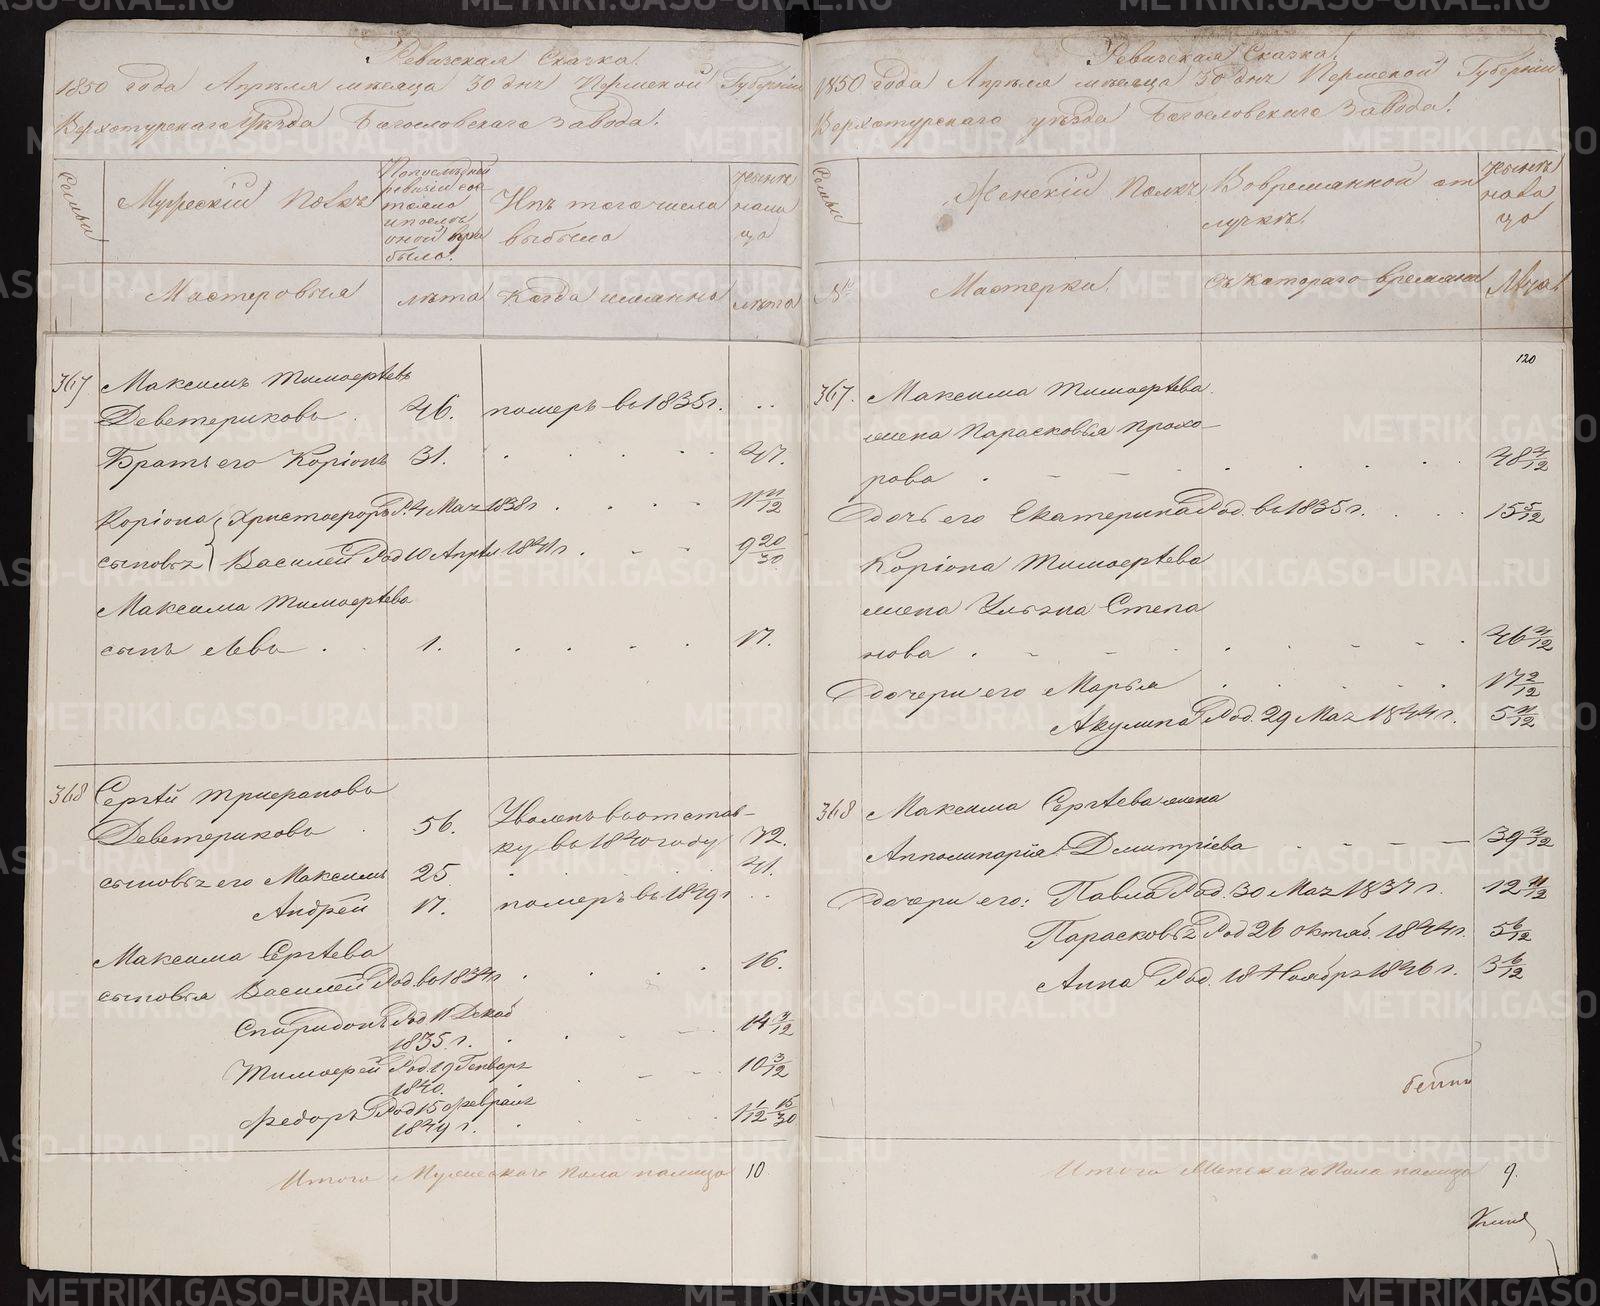 Ревизская Сказка!
1850 года Апреля месяца 30 дня Пермской Губернии
Верхотурскаго Уезда Богословскаго Завода!
Семьи
Мужеский Полъ
По последней
ревизии сос
тояло
и после
оной при
было!
Изъ того числа
выбыло
Ныне
нали
цо
Мастеровыя
лета
Когда именно
лета
367
Максимъ Тимоѳеевъ
Деветериковъ
46.
померъ въ 1835 г.
Братъ его Коріонъ
31.
47.
Коріона
Христофоръ Р. 4 Маи 1838 г
11 11/12
сыновья
Василей Род 10 Апреля 1841 г
9 20/30
Максима Тимоѳеева
сынъ Левъ
1.
17.
368
Сергѣй Трифановъ
Деветериковъ
56.
Уволенъ въ отстав-
ку въ 1840 году
72.
сыновья его Максимъ
25
41.
Андрей
17.
померъ въ 1849 г
Максима Сергѣева
сыновья Василей Род. въ 1834 г
16.
Спиридонъ Род 11 Декаб
1835 г.
14 4/12
Тимоѳей Род. 19 Генваря
1840.
10 3/12
Федоръ Род 15 Февраля
1849 г.
1 1/12 15/30
Итого Мужескаго Пола налицо
10
Ревизская Сказка!
1850 года Апреля месяца 30 дня Пермской Губернии
Верхотурскаго уезда Богословскаго Завода!
Семьи
Женский Полъ
Во временной от
лучке
Ныне
нали
цо
№
Мастерки.
Съ котораго времяни
Лета
120
367.
Максима Тимоѳеева
жена Парасковья Прохо-
рова
48 4/12
Дочь его Екатерина Род. въ 1835 г.
15 5/12
Коріона Тимоѳеева
жена Ульяна Степа
нова
46 4/12
Дочери его Марья
17 2/12
Акулина Род. 29 Мая 1844 г.
5 11/12
368
Максима Сергѣева жена
Апполинарія Дмитріева
39 4/12
Дочери его: Павла Род. 30 Мая 1837 г.
12 11/12
Парасковья Род 26 октяб. 1844 г.
5 6/12
Анна Род. 18 Ноября 1846 г.
3 6/12
Итого Женскаго Пола налицо
9.
METRIKI.GASO-URAL.RU